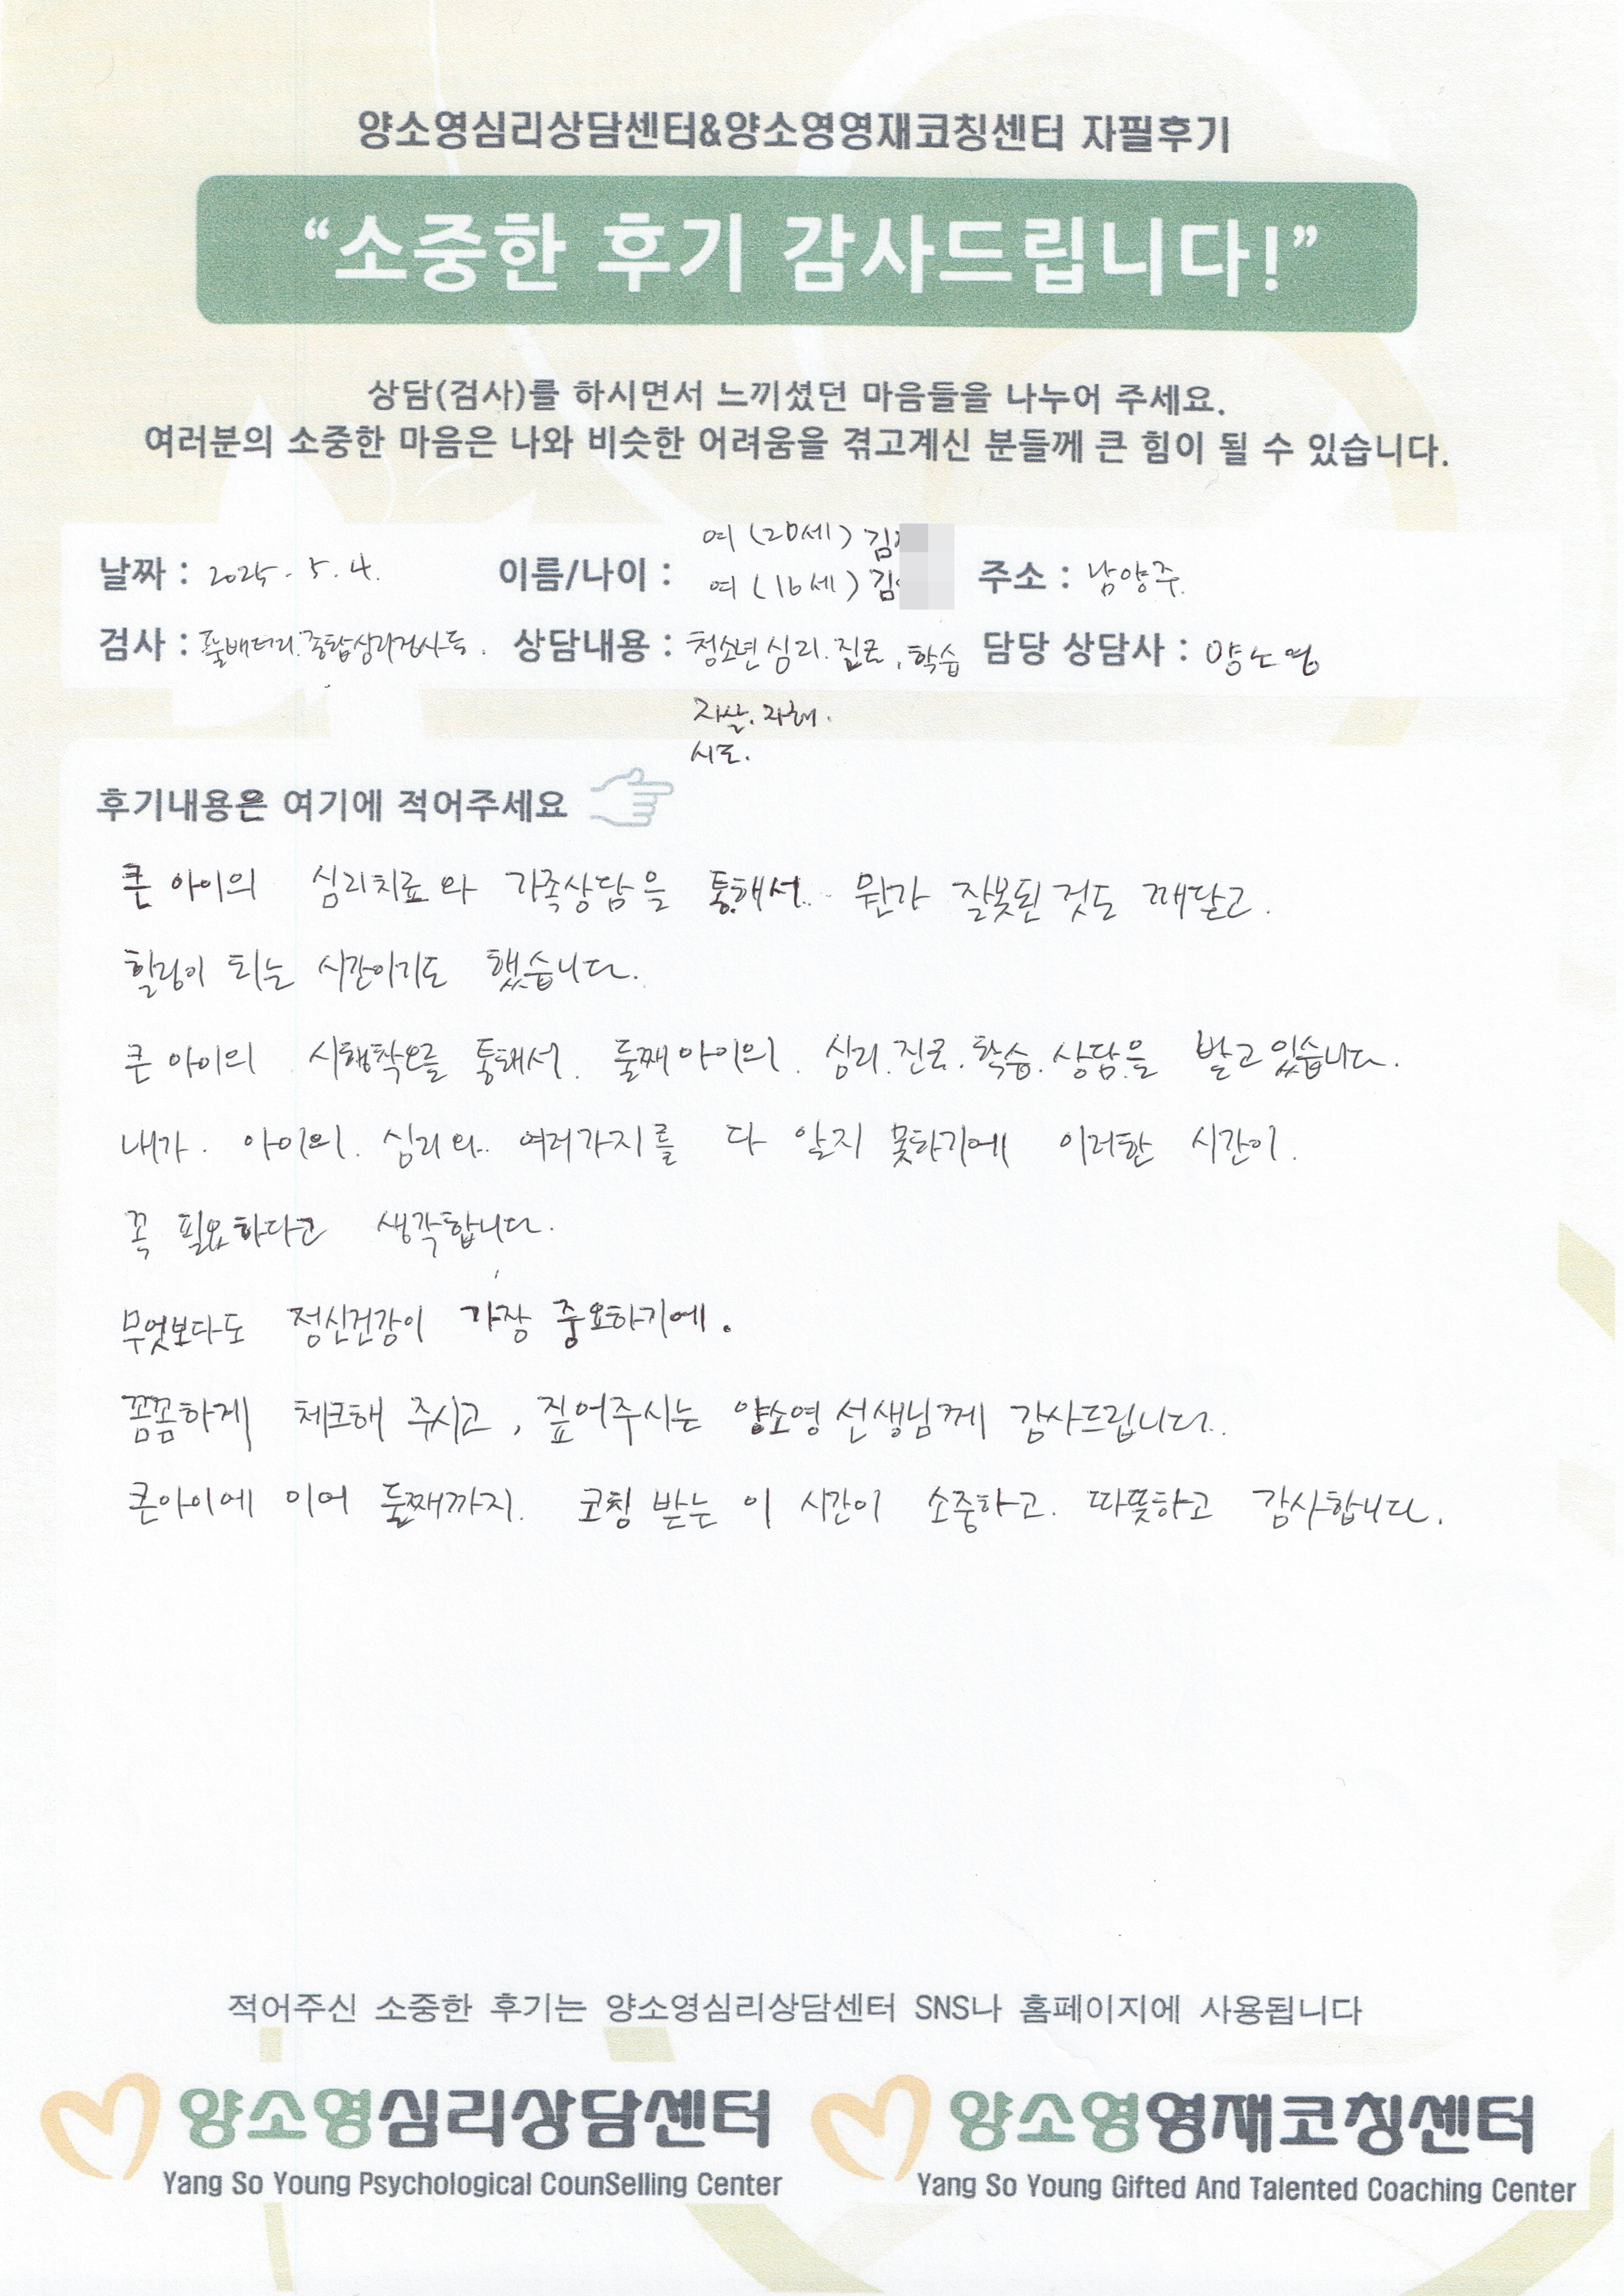 양소영심리상담센터&양소영영재코칭센터 자필후기
“소중한 후기 감사드립니다!”
상담(검사)를 하시면서 느끼셨던 마음들을 나누어 주세요.
여러분의 소중한 마음은 나와 비슷한 어려움을 겪고계신 분들께 큰 힘이 될 수 있습니다.
여 (20세) 김
날짜 : 2025. 5. 4. 이름/나이 : 여 (16세) 김 주소 : 남양주.
검사 : 풀배터리.종합심리검사등. 상담내용 : 청소년심리.진로,학습 담당 상담사 : 양소영
자살.자해.
시도.
후기내용은 여기에 적어주세요
큰 아이의 심리치료와 가족상담을 통해서.. 뭔가 잘못된 것도 깨달고.
힐링이 되는 시간이기도 했습니다.
큰 아이의 시행착오를 통해서. 둘째아이의. 심리.진로.학습.상담을 받고있습니다.
내가. 아이의. 심리와.. 여러가지를 다 알지 못하기에 이러한 시간이.
꼭 필요하다고 생각합니다.
무엇보다도 정신건강이 가장 중요하기에.
꼼꼼하게 체크해 주시고, 짚어주시는 양소영선생님께 감사드립니다.
큰아이에 이어 둘째까지. 코칭 받는 이 시간이 소중하고. 따뜻하고 감사합니다.
적어주신 소중한 후기는 양소영심리상담센터 SNS나 홈페이지에 사용됩니다
양소영심리상담센터 양소영영재코칭센터
Yang So Young Psychological CounSelling Center Yang So Young Gifted And Talented Coaching Center